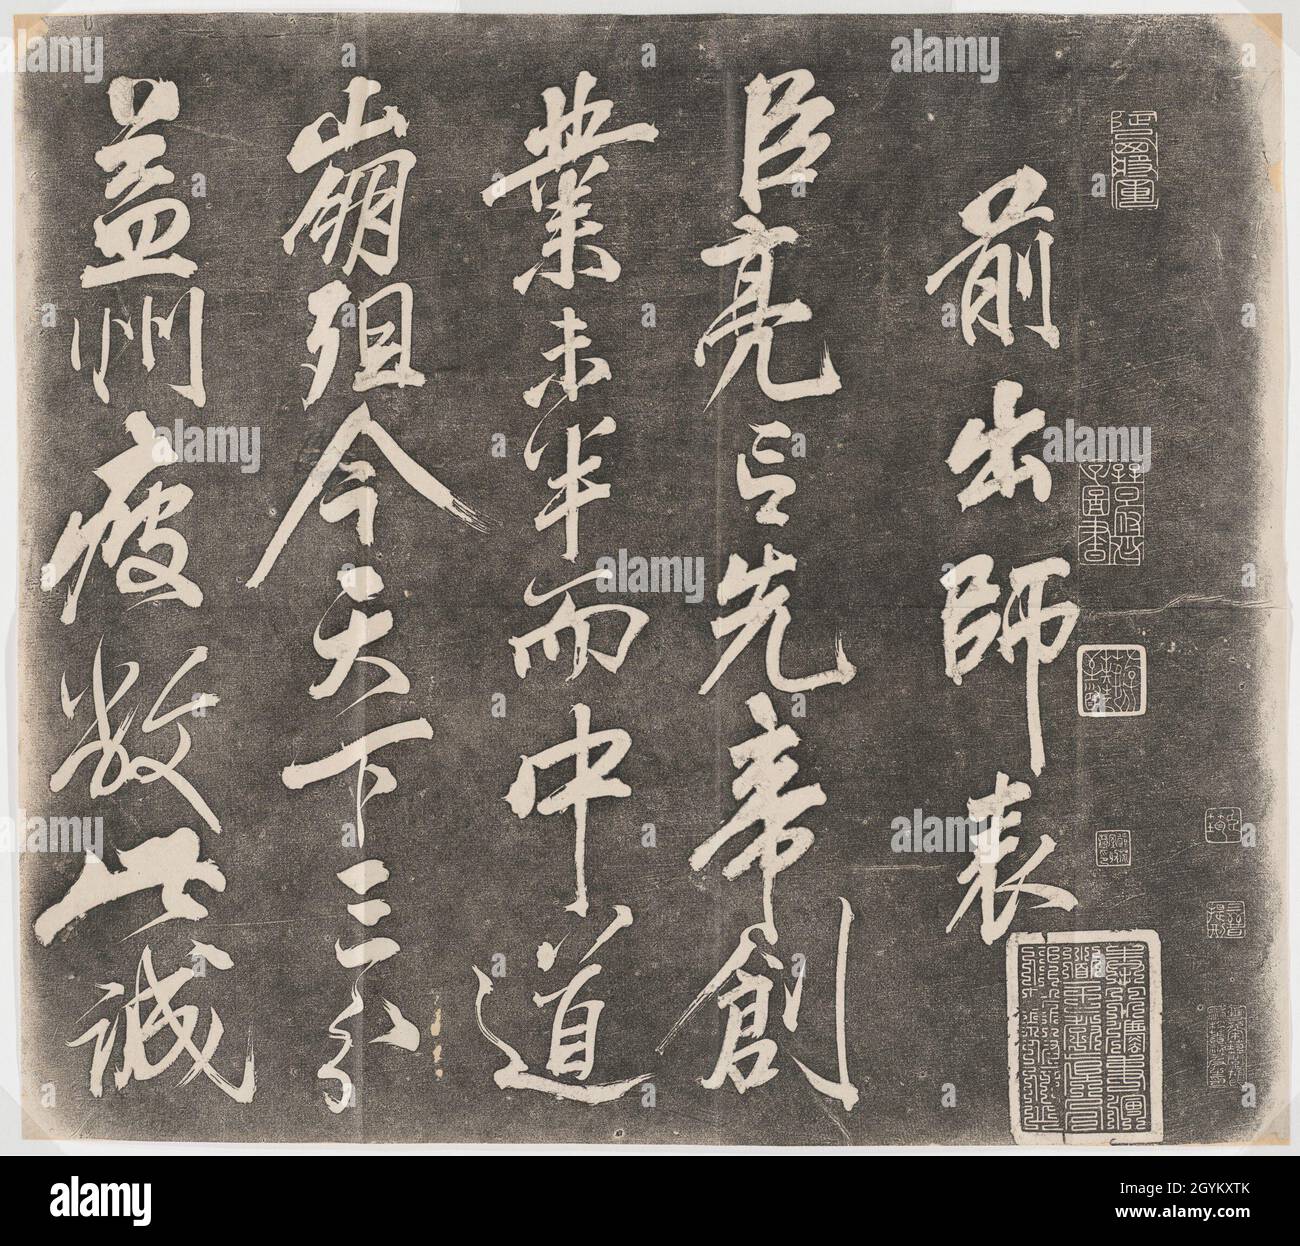 前出師表
臣亮言先帝創
業未半而中道
崩殂今天下三分
益州疲敝此誠
alamy
Image ID: 2GYKXTK
www.alamy.com